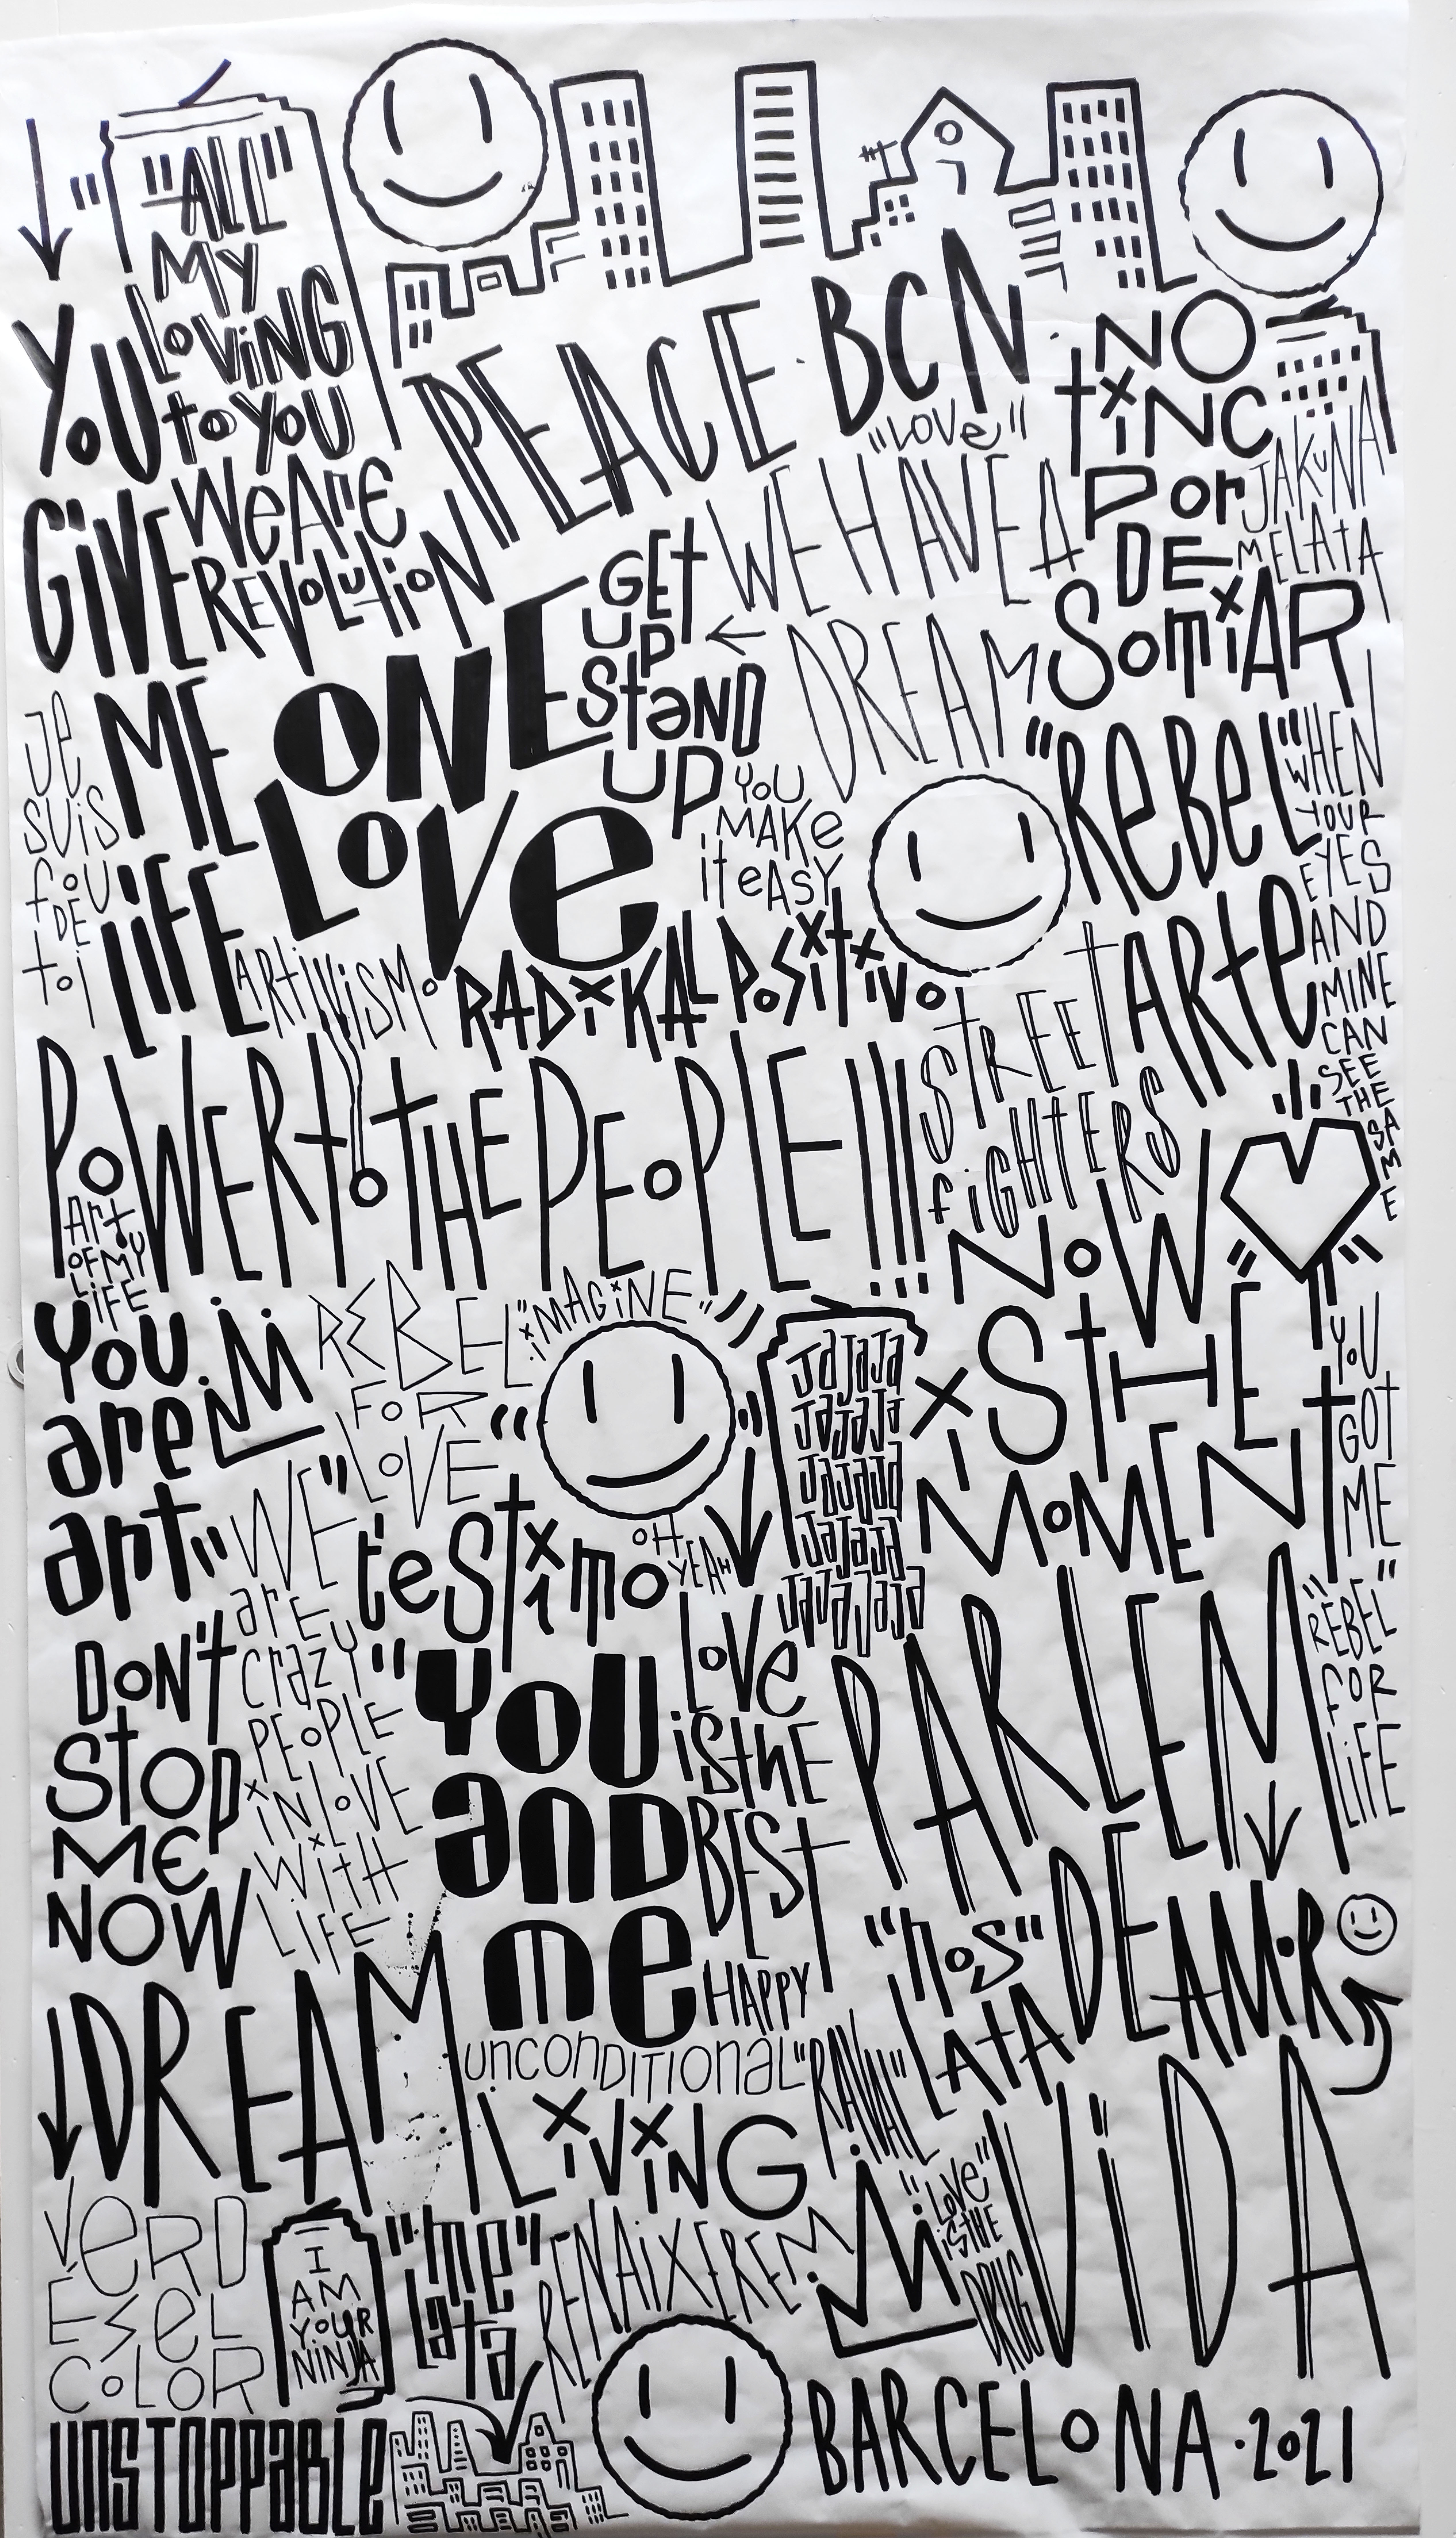 "ALL"
MY
LOVING
to YOU
YOU
GIVE
ME
LIFE
WeAre
REVOLUTiON
PEACE · BCN ·
"LOVe"
NO
tiNC
Por
DE
SomiAR
JAKuNA
MELAtA
WE HAVE A
DREAM
GEt
UP
StaND
UP
ONE
LoVe
YoU
MAKe
it eASY
je
SUiS
foU
DE
toi
"ReBeL"
ARte
WHEN
YOUR
EYES
AND
MINE
CAN
SEE
THE
SAME
ARtiViSMo
RADiKAL PoSitivo
PoWER to THE PEoPLE !!!
StREEt
fiGHtERS
Art
OF MY
LiFE
YoU
are
art
REBEL
FoR
LoVE
"iMAGiNE"
JaJaJa
JaJaJa
JaJaJa
JaJaJa
JaJaJaJa
NoW
iS tHE
MoMENt
YoU
GOT
ME
"WE"
arE
crazy
PEoPLE
iN LoVE
WitH
LIFE
t'eStimo
OH
YEAH
DoN't
StOp
ME
NOW
"YoU
anD
me
LoVe
iS thE
BESt
PARLEM
DEAMoR
"REBEL"
FOR
LiFE
"noS"
LAtA
HAPPY
DREAM
unconDITIonaL
LiViNG
"RAVAL"
VeRD
ESeL
CoLoR
I
AM
YOUR
NINJA
"me"
Lata
RENAiXEREM
"LoVe"
iS tHE
DRUG
ViDA
UnSTOPPaBLE
BARCELoNA · 2021